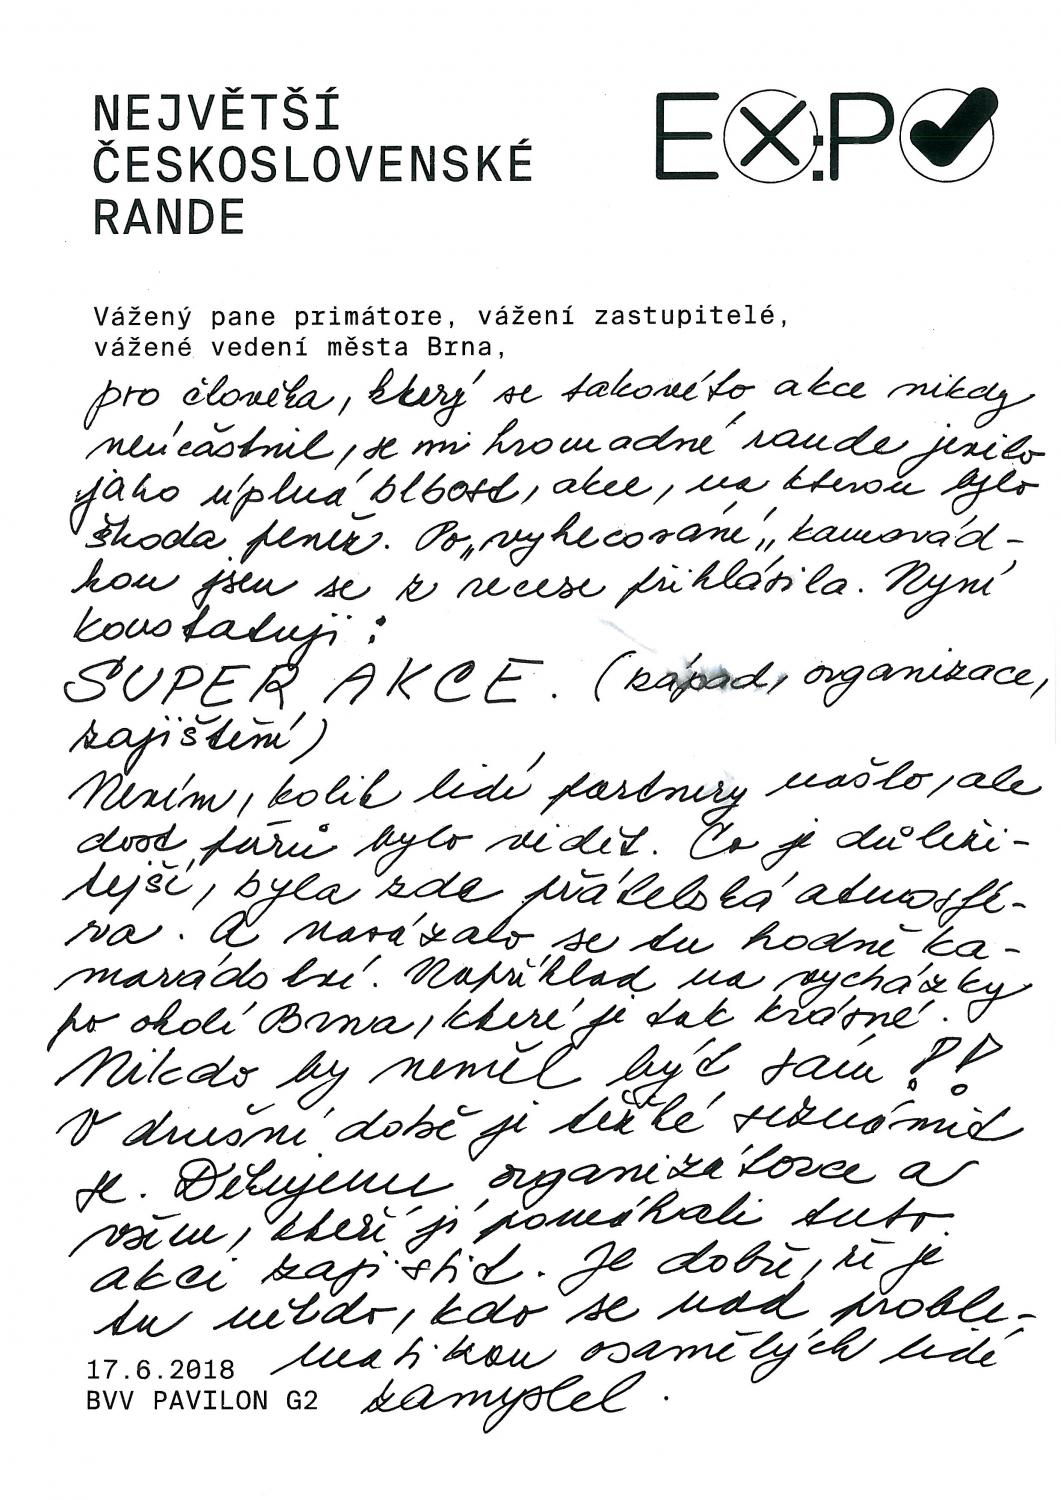 NEJVĚTŠÍ
ČESKOSLOVENSKÉ
RANDE
EX:PO
Vážený pane primátore, vážení zastupitelé,
vážené vedení města Brna,
pro člověka, který se takovéto akce nikdy
neúčastnil, se mi hromadné rande jevilo
jako úplná blbost, akce, na kterou bylo
škoda peněz. Po „vyhecování„ kamarád-
kou jsem se z recese přihlásila. Nyní
konstatuji:
SUPER AKCE. (nápad, organizace,
zajištění)
Nevím, kolik lidí partnery našlo, ale
dost párů bylo vidět. Co je důleži-
tejší, byla zde přátelská atmosfé-
ra. A navázalo se tu hodně ka-
marádství. Například na vycházky
po okolí Brna, které je tak krásné.
Nikdo by neměl být sám!!
V dnešní době je těžké seznámit
se. Děkujeme organizátorce a
všem, kteří jí pomáhali tuto
akci zajistit. Je dobře, že je
tu někdo, kdo se nad proble-
matikou osamělých lidí
zamyslel.
17.6.2018
BVV PAVILON G2